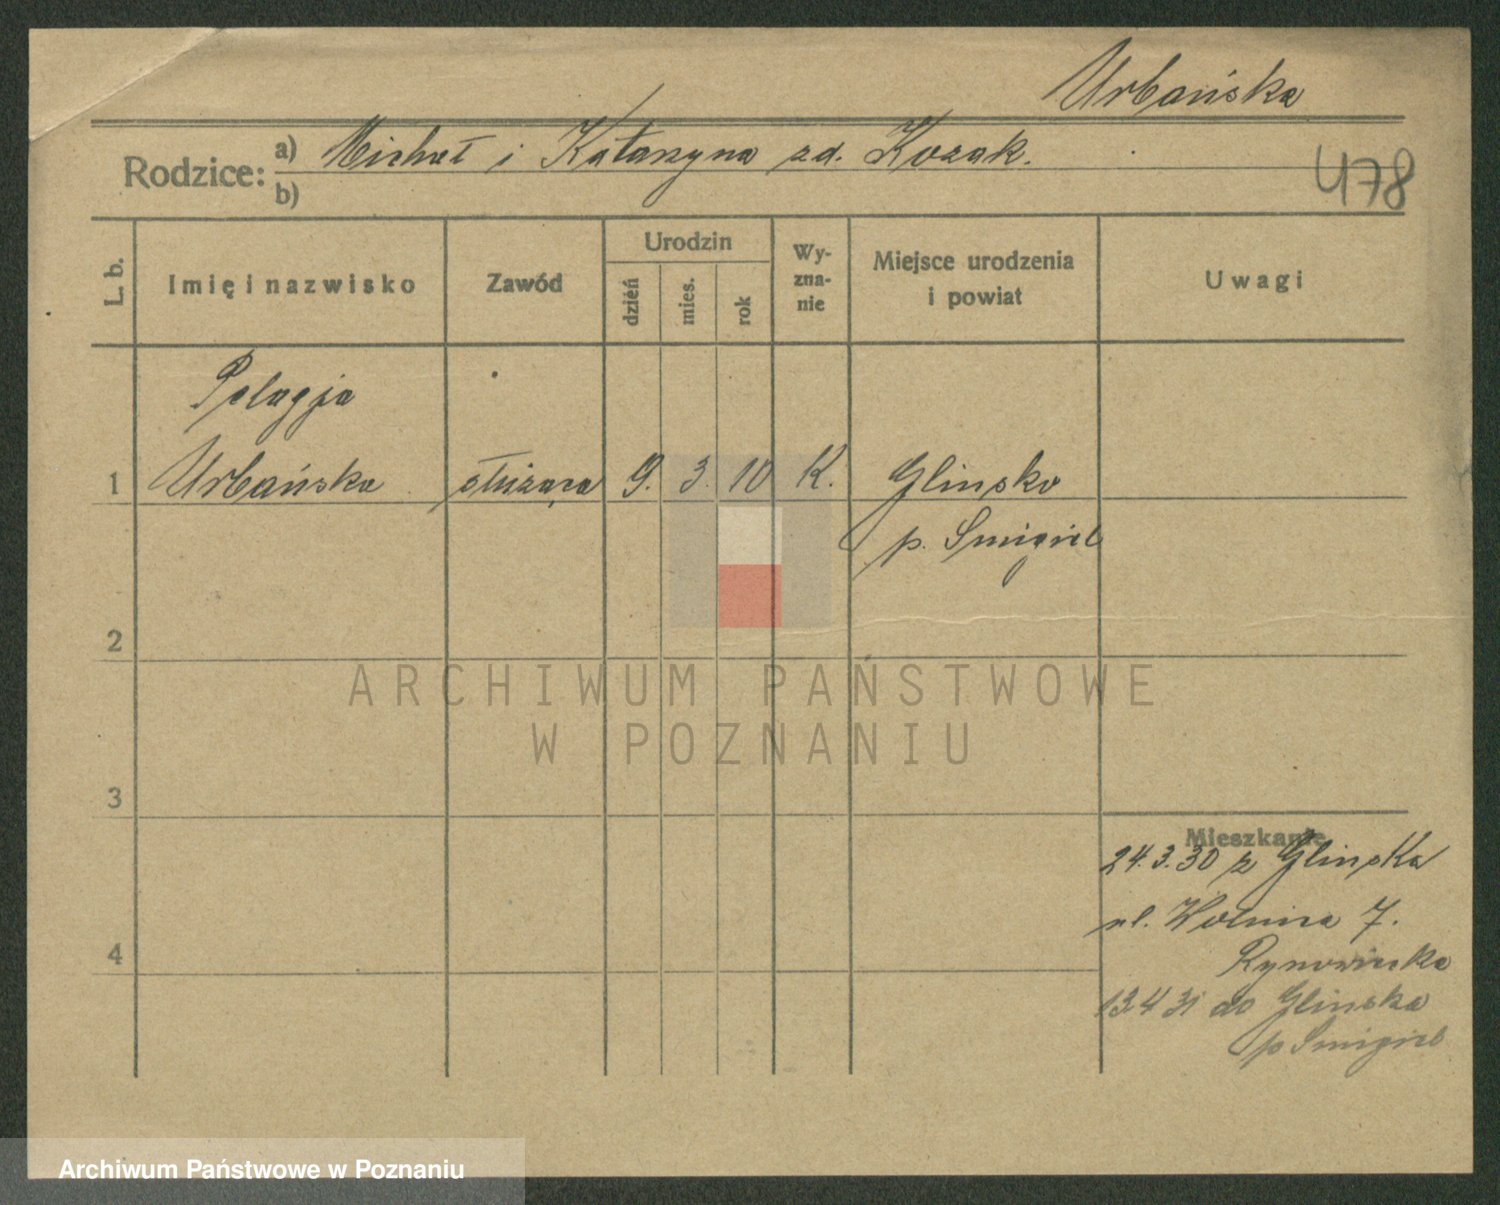 Urbańska
Rodzice: a) Michał i Katarzyna zd. Kozak.
b)
478
L. b.
Imię i nazwisko
Zawód
Urodzin
dzień
mies.
rok
Wy-
zna-
nie
Miejsce urodzenia
i powiat
Uwagi
Pelagja
1 Urbańska służąca 9. 3. 10 K. Glinsko
p. Smigiel
2
3
4
Mieszkanie
24.3.30 z Glinska
ul. Wolnica 7.
13 4 31 do Glinska
p Smigiel
ARCHIWUM PAŃSTWOWE
W POZNANIU
Archiwum Państwowe w Poznaniu